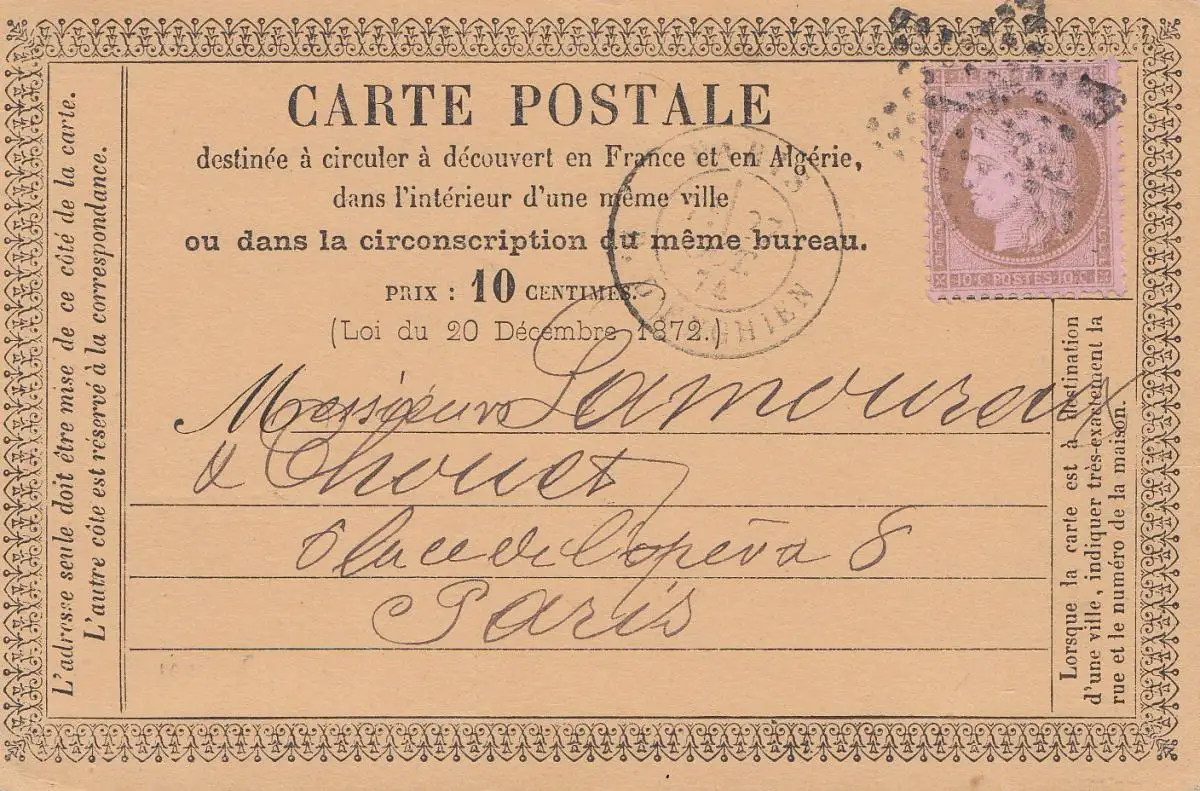 CARTE POSTALE
destinée à circuler à découvert en France et en Algérie,
dans l'intérieur d'une même ville
ou dans la circonscription du même bureau.
PRIX : 10 CENTIMES.
(Loi du 20 Décembre 1872.)
PARIS
R. D'ENGHIEN
74
10·C·POSTES·10·C
Messieurs Lamoureux
& Chouet
Place de l'opéra 8
Paris
L'adresse seule doit être mise de ce côté de la carte.
L'autre côte est réservé à la correspondance.
Lorsque la carte est à destination
d'une ville, indiquer très-exactement la
rue et le numéro de la maison.